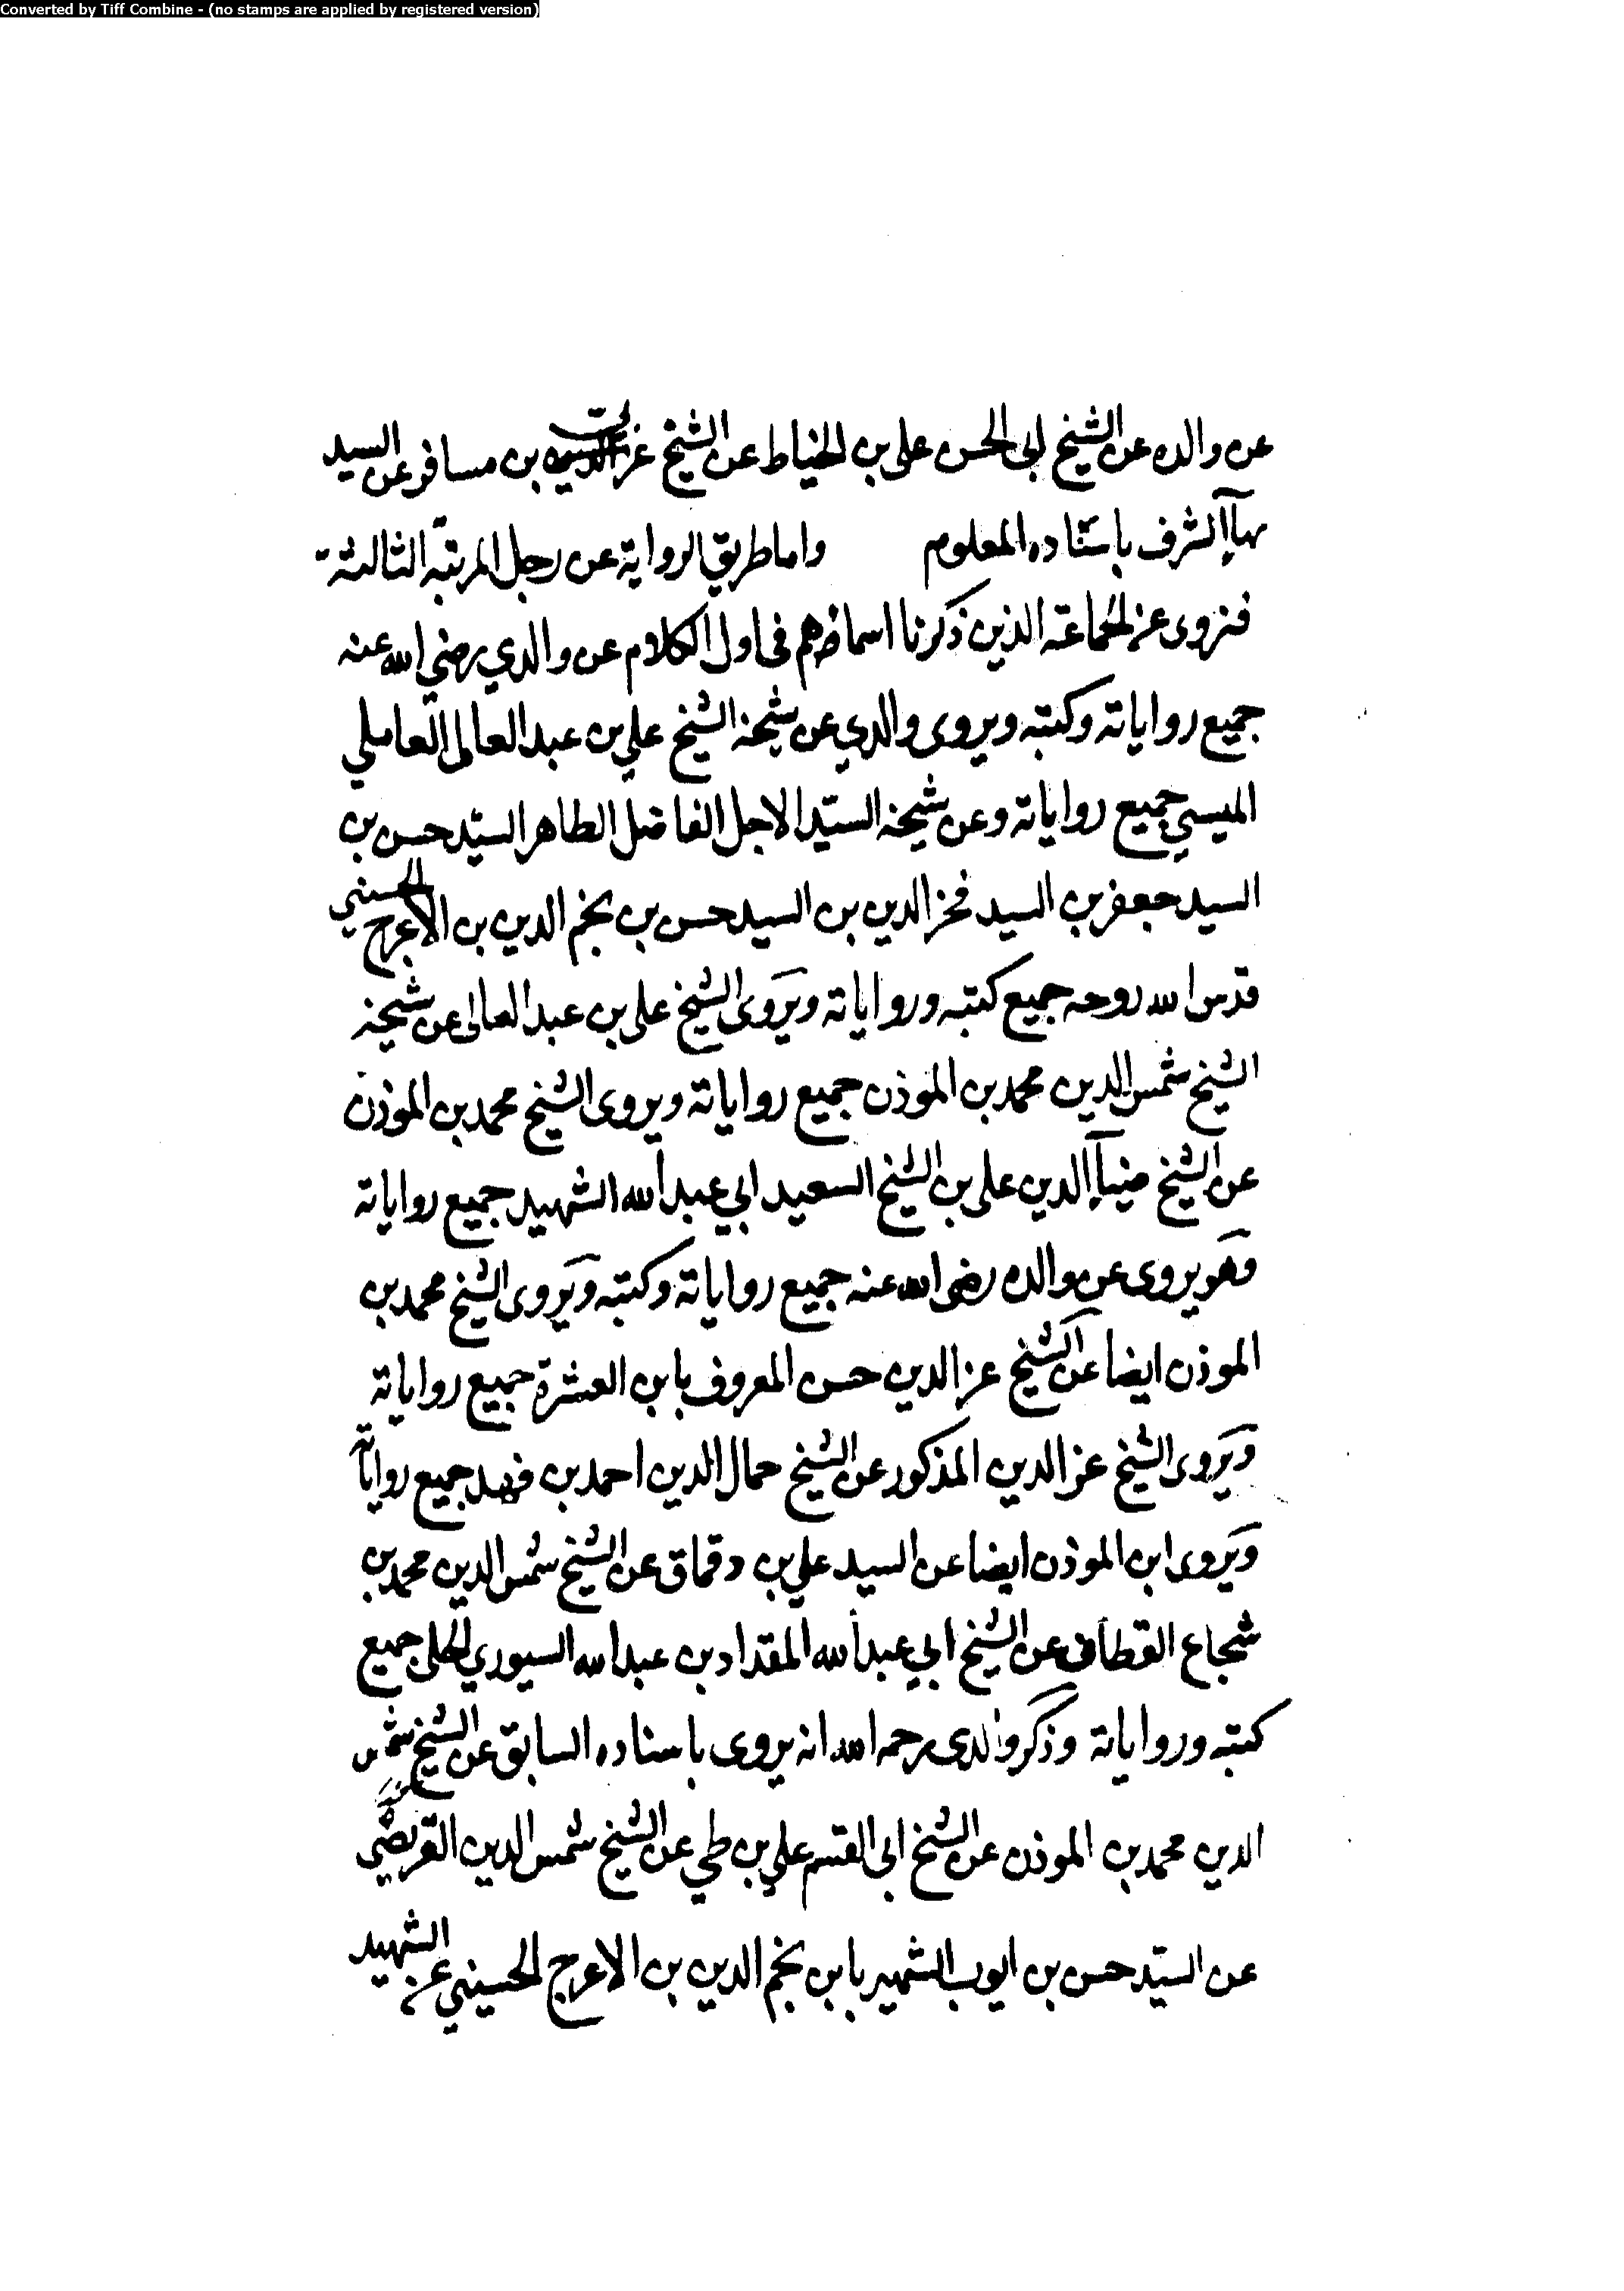 Converted by Tiff Combine - (no stamps are applied by registered version)
عن والده عن الشيخ ابى الحسن على بن الخياط عن الشيخ عز بن مسافر عن السيد
بهآ الشرف باسناده المعلوم واما طريق الرواية عن رجل المرتبة الثالثة
فنروى عن الجماعة الذين ذكرنا اسماؤهم فى اول الكلام عن والدي رضي الله عنه
جميع رواياته وكتبه ويروى والدي عن شيخه الشيخ علي بن عبد العالى العاملي
الميسي جميع رواياته وعن شيخه السيّد الاجل الفاضل الطاهر السيّد حسن بن
السيد جعفر بن السيد فخر الدين بن السيد حسن بن نجم الدين بن الاعرج الحسيني
قدس الله روحه جميع كتبه ورواياته ويروى الشيخ على بن عبد العالى عن شيخه
الشيخ شمس الدين محمد بن الموذن جميع رواياته ويروى الشيخ محمد بن الموذن
عن الشيخ ضيآ الدين على بن الشيخ السعيد ابي عبد الله الشهيد جميع رواياته
وهو يروى عن والده رضى الله عنه جميع رواياته وكتبه ويروى الشيخ محمد بن
الموذن ايضا عن الشيخ عز الدين حسن المعروف بابن العشرة جميع رواياته
ويروى الشيخ عز الدين المذكور عن الشيخ جمال الدين احمد بن فهد جميع رواياته
ويروى ابن الموذن ايضا عن السيد علي بن دقماق عن الشيخ شمس الدين محمد بن
شجاع القطان عن الشيخ ابي عبد الله المقداد بن عبد الله السيوري الحلى جميع
كتبه ورواياته وذكر والدى رحمه الله انه يروى باسناده السابق عن الشيخ شمس
الدين محمد بن الموذن عن الشيخ ابى القسم علي بن طي عن الشيخ شمس الدين العريضي
عن السيّد حسن بن ايوب الشهير بابن نجم الدين بن الاعرج الحسيني عن الشهيد